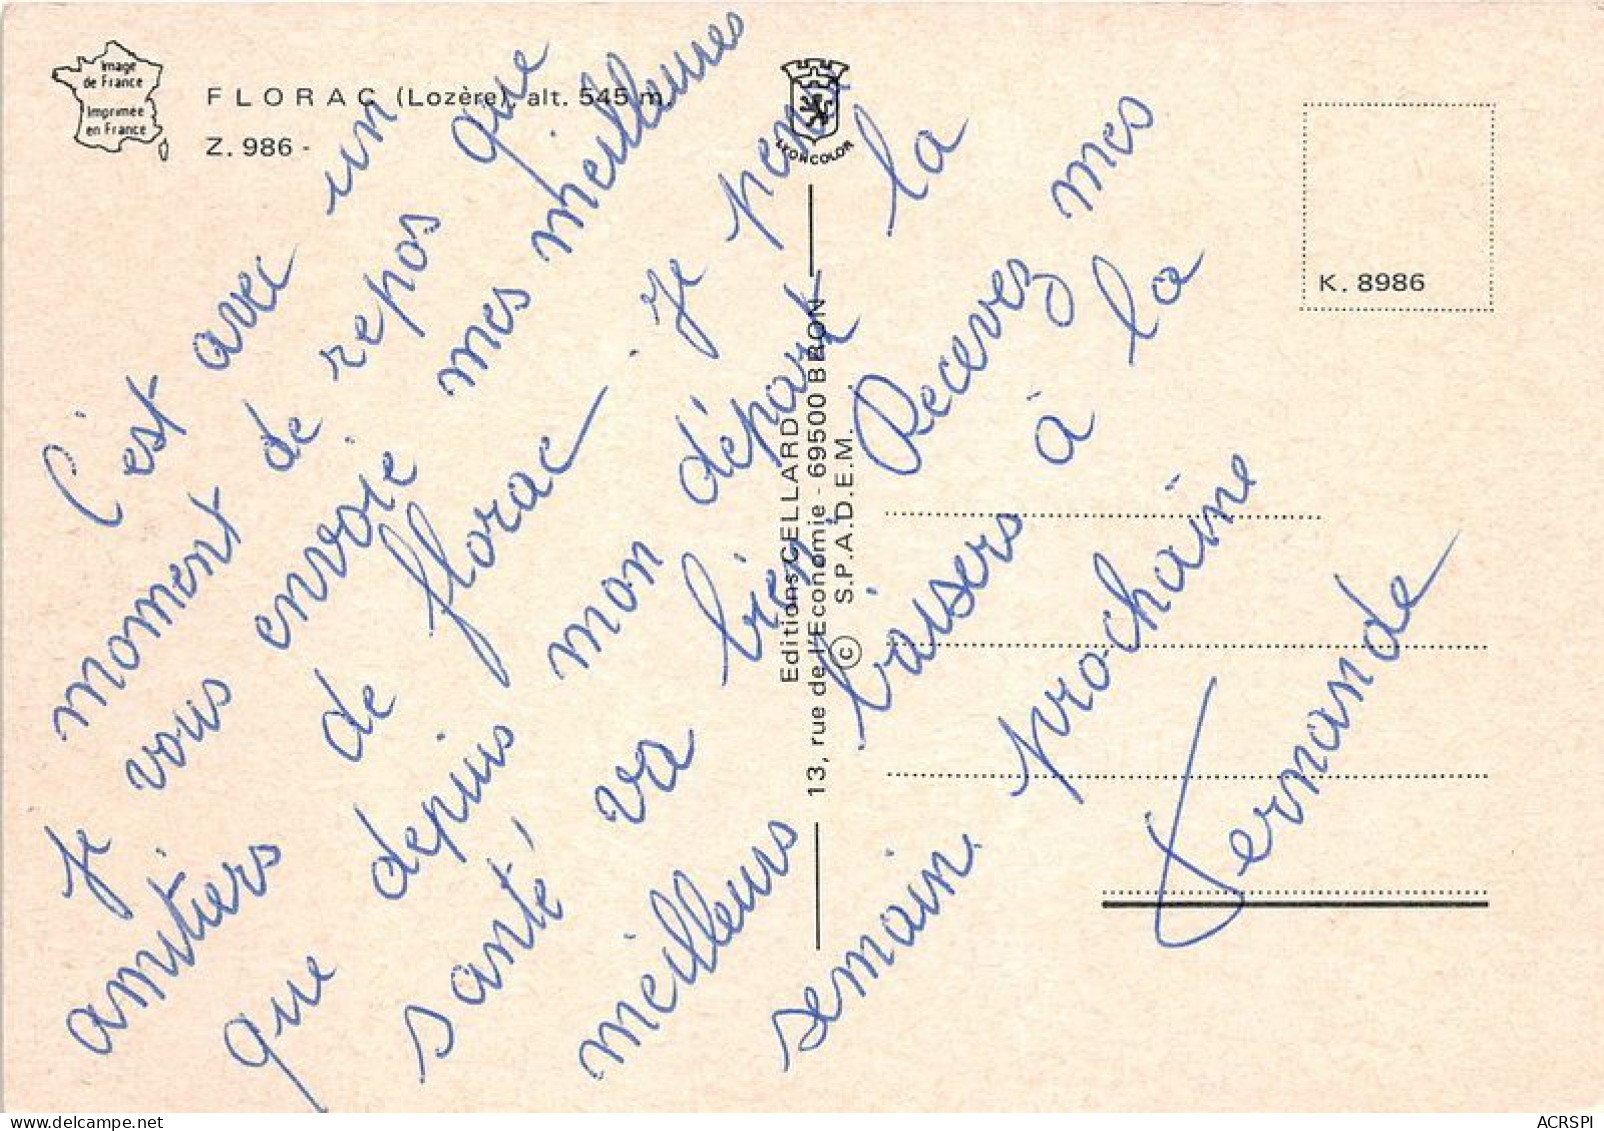 Image
de France
Imprimée
en France
FLORAC (Lozère), alt. 545 m.
Z. 986 -
LYONCOLOR
K. 8986
Editions CELLARD
13, rue de l'Economie - 69500 BRON
© S.P.A.D.E.M.
C'est avec un
moment de repos que
je vous envoie mes meilleures
amitiers de florac. je pense
que depuis mon départ la
santé va bien. Recevez mes
meilleurs baisers à la
semain prochaine
Fernande
ACRSPI